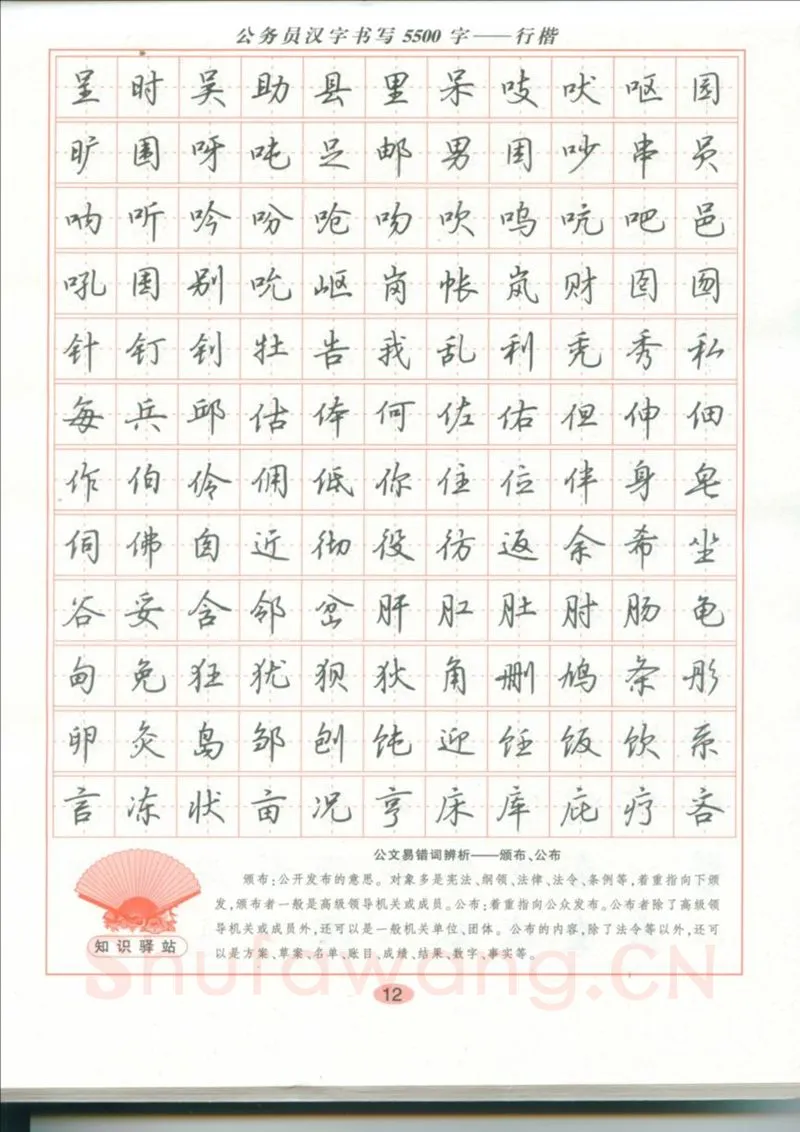 公务员汉字书写5500字——行楷
呈时吴助县里呆吱吠呕园
旷围呀吨足邮男困吵串员
呐听吟吩呛吻吹呜吭吧邑
吼囤别吮岖岗帐岚财囵囫
针钉钊牡告我乱利秃秀私
每兵邱估体何佐佑但伸佃
作伯伶佣低你住位伴身皂
伺佛囱近彻役彷返余希坐
谷妥含邻岔肝肛肚肘肠龟
甸免狂犹狈狄角删鸠条彤
卵灸岛邹刨饨迎饪饭饮系
言冻状亩况亨床库庇疗吝
公文易错词辨析——颁布、公布
颁布:公开发布的意思。对象多是宪法、纲领、法律、法令、条例等,着重指向下颁
发,颁布者一般是高级领导机关或成员。公布:着重指向公众发布。公布者除了高级领
导机关或成员外,还可以是一般机关单位、团体。公布的内容,除了法令等以外,还可
以是方案、草案、名单、账目、成绩、结果、数字、事实等。
知识驿站
Shufawang.CN
12